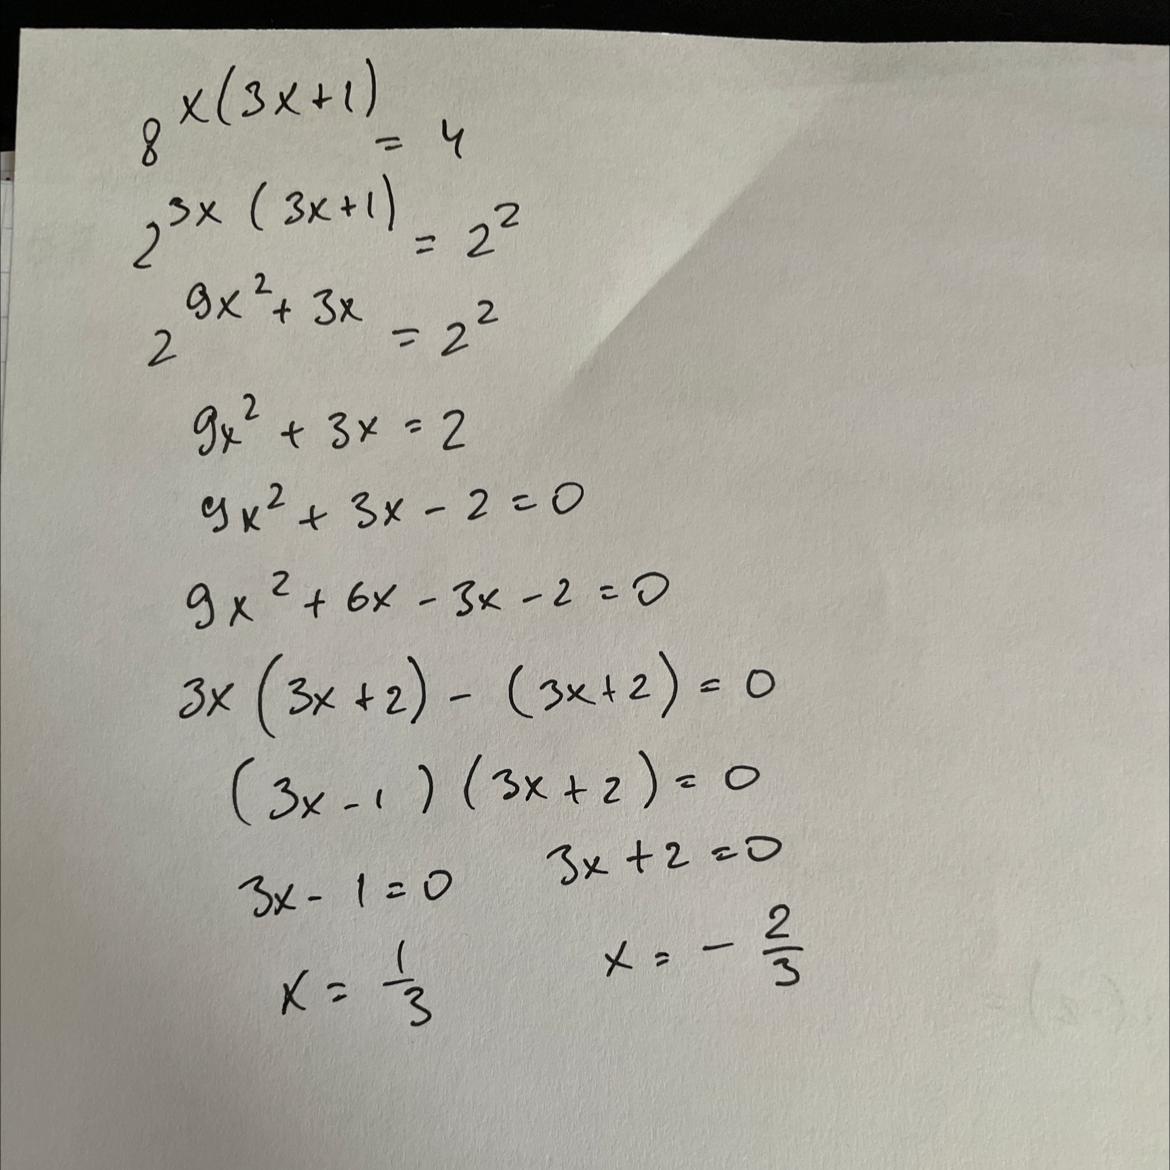 8^{x(3x+1)} = 4
2^{3x(3x+1)} = 2^2
2^{9x^2+3x} = 2^2
9x^2 + 3x = 2
9x^2 + 3x - 2 = 0
9x^2 + 6x - 3x - 2 = 0
3x(3x+2) - (3x+2) = 0
(3x-1)(3x+2) = 0
3x - 1 = 0 3x + 2 = 0
x = 1/3 x = - 2/3